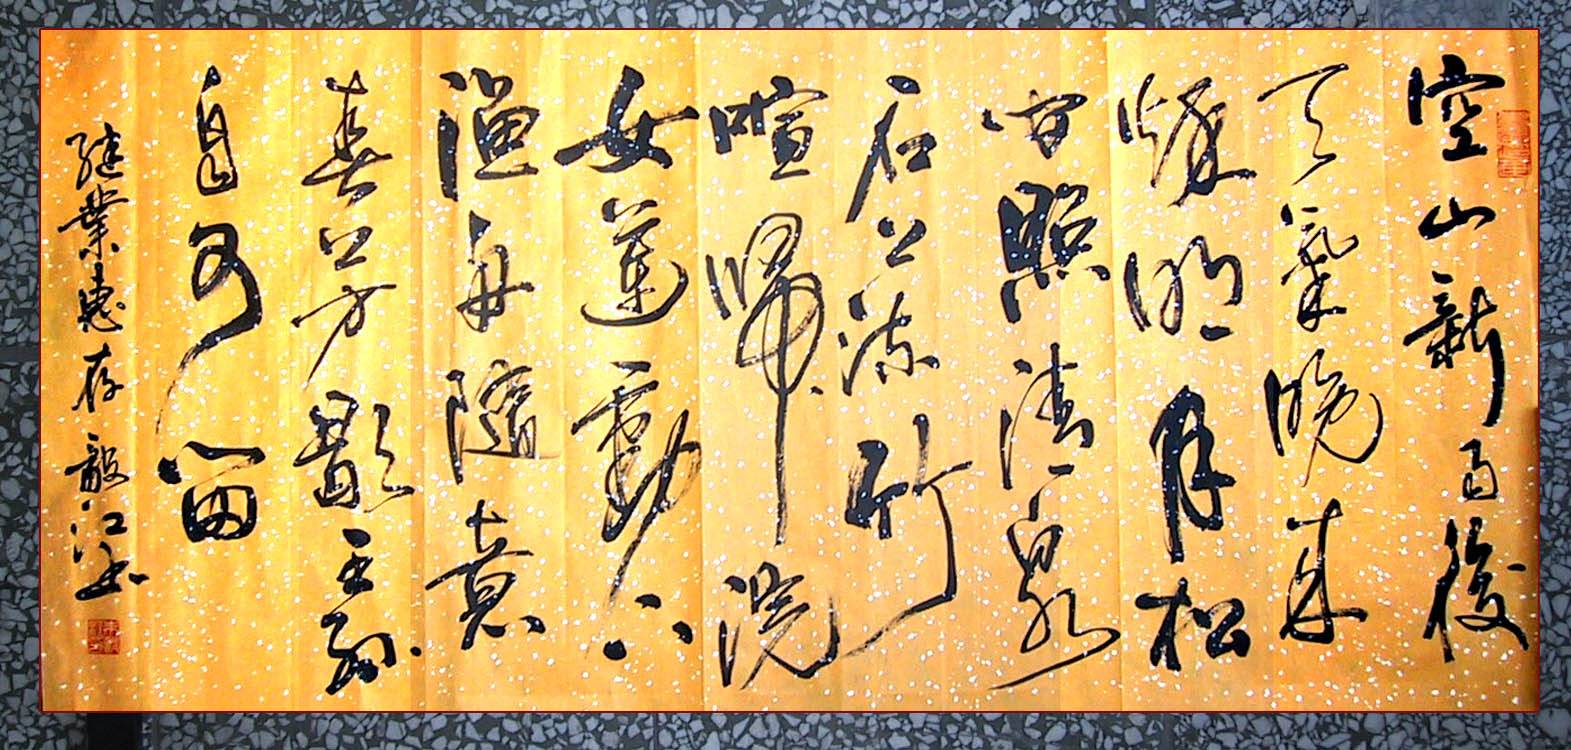 空山新雨後
天氣晚來
秋明月松
間照清泉
石上流竹
喧歸浣
女蓮動下
漁舟隨意
春芳歇王孫
自可留
繼業惠存 江書